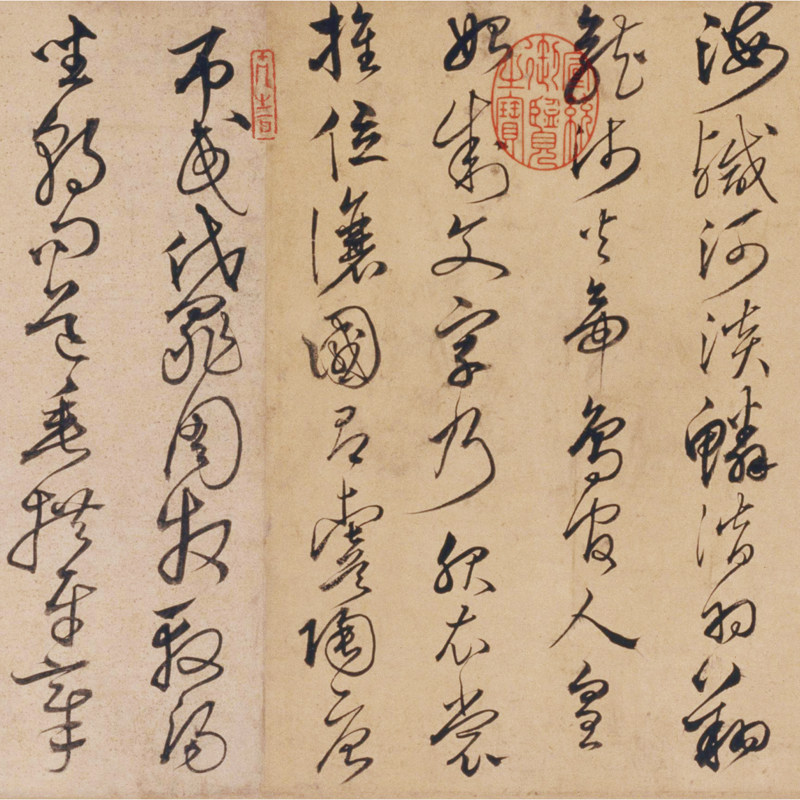 海鹹河淡鱗潛羽翔
龍師火帝鳥官人皇
始制文字乃服衣裳
推位讓國有虞陶唐
弔民伐罪周發殷湯
坐朝問道垂拱平章
宣統御覽之寶